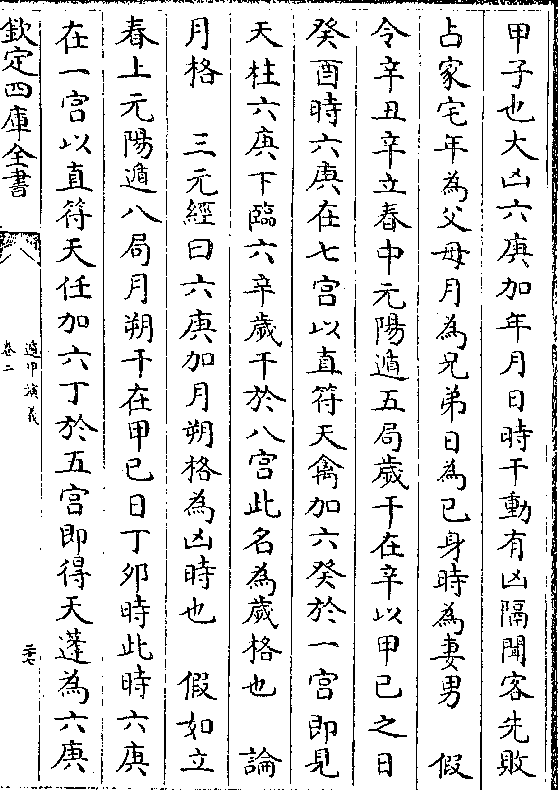 甲子也大凶六庚加年月日時干動有凶隔聞客先敗
占家宅年為父母月為兄弟日為已身時為妻男　假
令辛丑辛立春中元陽遁五局歲干在辛以甲已之日
癸酉時六庚在七宮以直符天禽加六癸於一宮即見
天柱六庚下臨六辛歲干於八宮此名為歲格也　論
月格　三元經曰六庚加月朔格為凶時也　假如立
春上元陽遁八局月朔干在甲已日丁夘時此時六庚
在一宮以直符天任加六丁於五宮即得天蓬為六庚
欽定四庫全書
遁甲演義
卷二